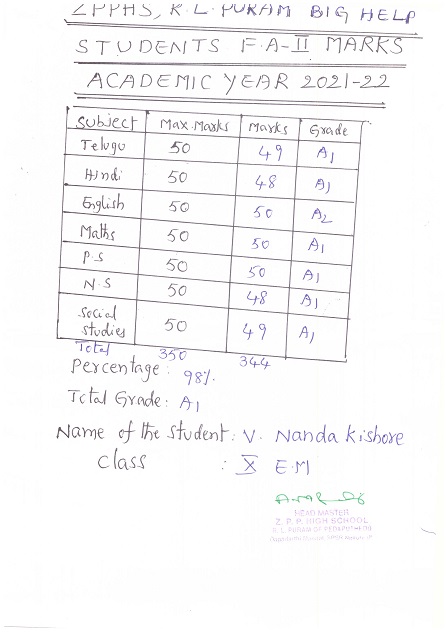 ZPPHS, R.L. PURAM BIG HELP
STUDENTS F.A-II MARKS
ACADEMIC YEAR 2021-22
Subject Max.Marks Marks Grade
Telugu 50 49 A1
Hindi 50 48 A1
English 50 50 A2
Maths 50 50 A1
P.S 50 50 A1
N.S 50 48 A1
Social
studies 50 49 A1
Total 350 344
Percentage: 98%
Total Grade: A1
Name of the student: V. Nanda Kishore
Class : X E.M
HEAD MASTER
Z. P. P. HIGH SCHOOL